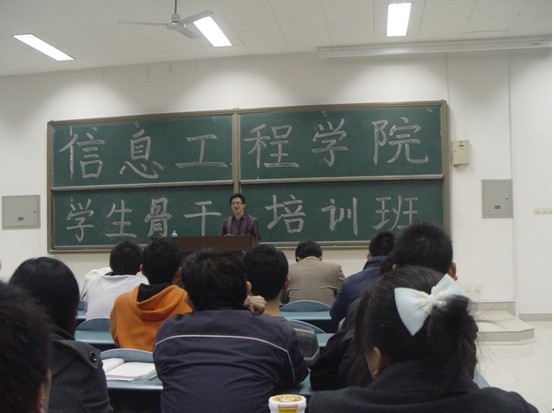 信息工程学院
学生骨干培训班